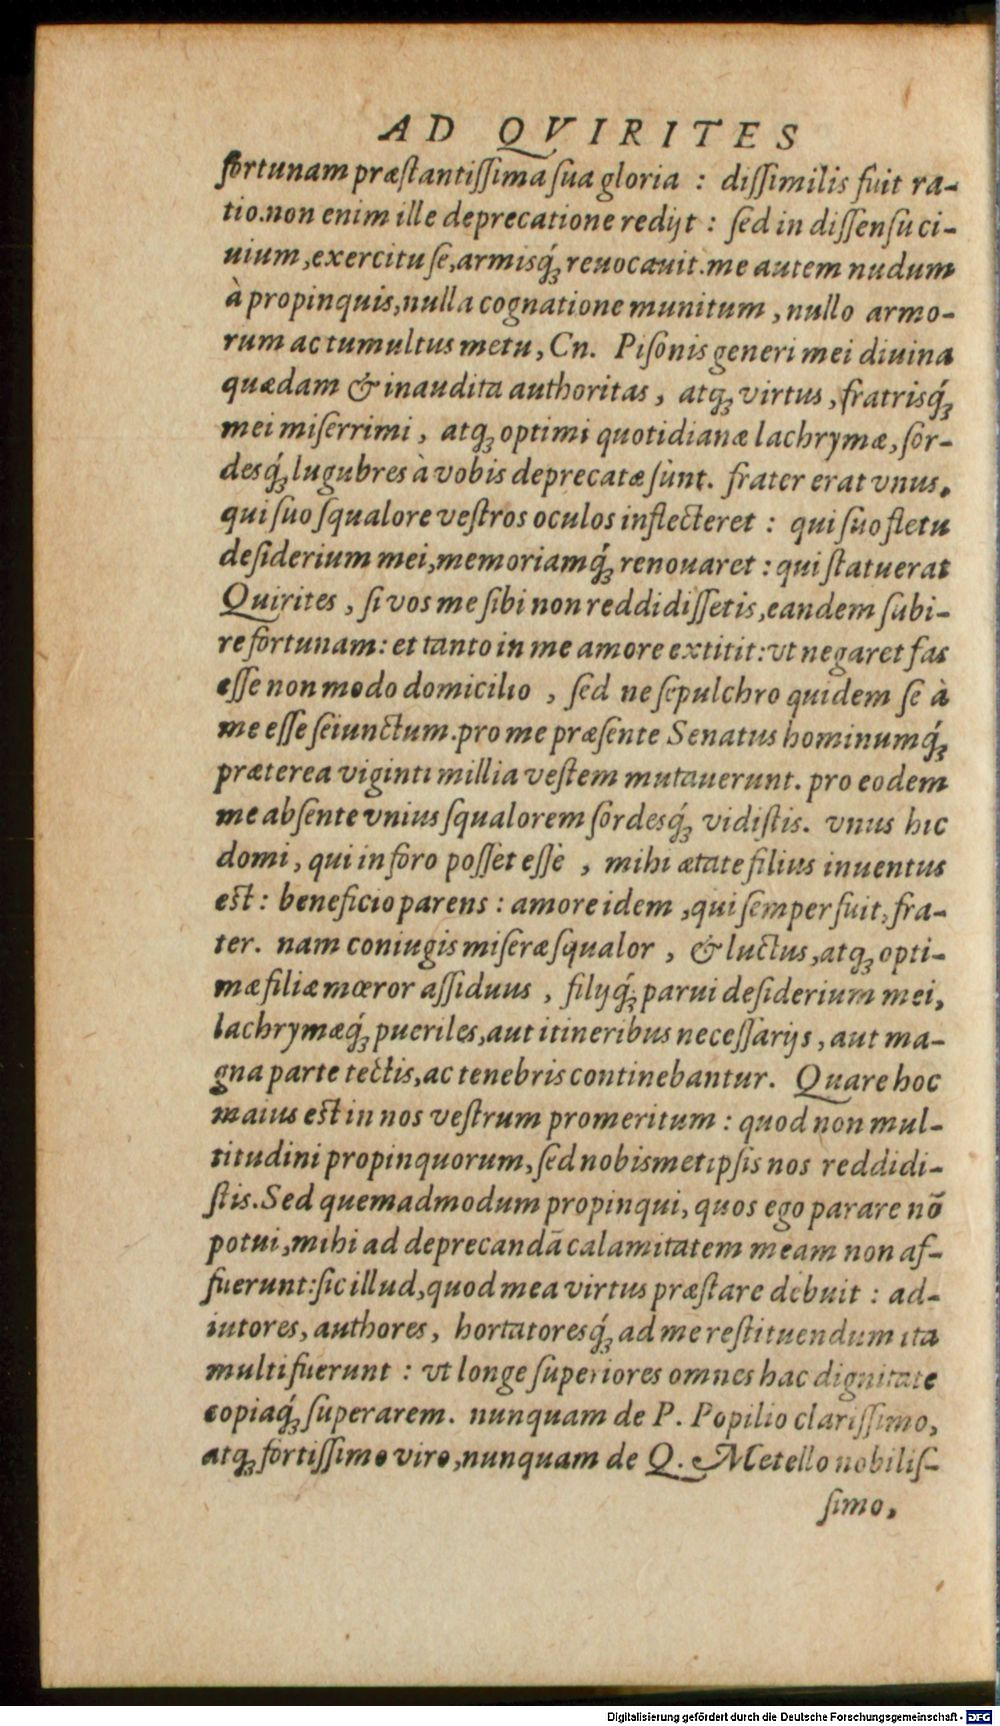 AD QVIRITES
fortunam præſtantiſſima ſua gloria : diſſimilis fuit ra-
tio.non enim ille deprecatione redijt : ſed in diſſenſu ci-
uium,exercitu ſe,armisq́ꝫ reuocauit.me autem nudum
à propinquis,nulla cognatione munitum , nullo armo-
rum ac tumultus metu, Cn. Piſonis generi mei diuina
quædam & inaudita authoritas , atqꝫ virtus , fratrisq́ꝫ
mei miſerrimi , atqꝫ optimi quotidianæ lachrymæ, ſor-
desq́ꝫ lugubres à vobis deprecatæ ſunt. frater erat vnus,
qui ſuo ſqualore veſtros oculos inflecteret : qui ſuo fletu
deſiderium mei,memoriamq́ꝫ renouaret : qui ſtatuerat
Quirites , ſi vos me ſibi non reddidiſſetis,eandem ſubi-
re fortunam: et tanto in me amore extitit:vt negaret fas
eſſe non modo domicilio , ſed ne ſepulchro quidem ſe à
me eſſe ſeiunctum.pro me præſente Senatus hominumq́ꝫ
præterea viginti millia veſtem mutauerunt. pro eodem
me abſente vnius ſqualorem ſordesq́ꝫ vidiſtis. vnus hic
domi, qui in foro poſſet eſſe , mihi ætate filius inuentus
eſt : beneficio parens : amore idem ,qui ſemper fuit,fra-
ter. nam coniugis miſeræ ſqualor , & luctus,atqꝫ opti-
mæ filiæ mœror aſſiduus , filijq́ꝫ parui deſiderium mei,
lachrymæq́ꝫ pueriles,aut itineribus neceſſarijs , aut ma-
gna parte tectis,ac tenebris continebantur. Quare hoc
maius eſt in nos veſtrum promeritum : quod non mul-
titudini propinquorum,ſed nobismetipſis nos reddidi-
ſtis.Sed quemadmodum propinqui, quos ego parare nõ
potui,mihi ad deprecandã calamitatem meam non af-
fuerunt:ſic illud,quod mea virtus præſtare debuit : ad-
iutores, authores, hortatoresq́ꝫ ad me reſtituendum ita
multi fuerunt : vt longe ſuperiores omnes hac dignitate
copiaq́ꝫ ſuperarem. nunquam de P. Popilio clariſſimo,
atqꝫ fortiſſimo viro,nunquam de Q. Metello nobiliſ-
ſimo,
Digitalisierung gefördert durch die Deutsche Forschungsgemeinschaft - DFG